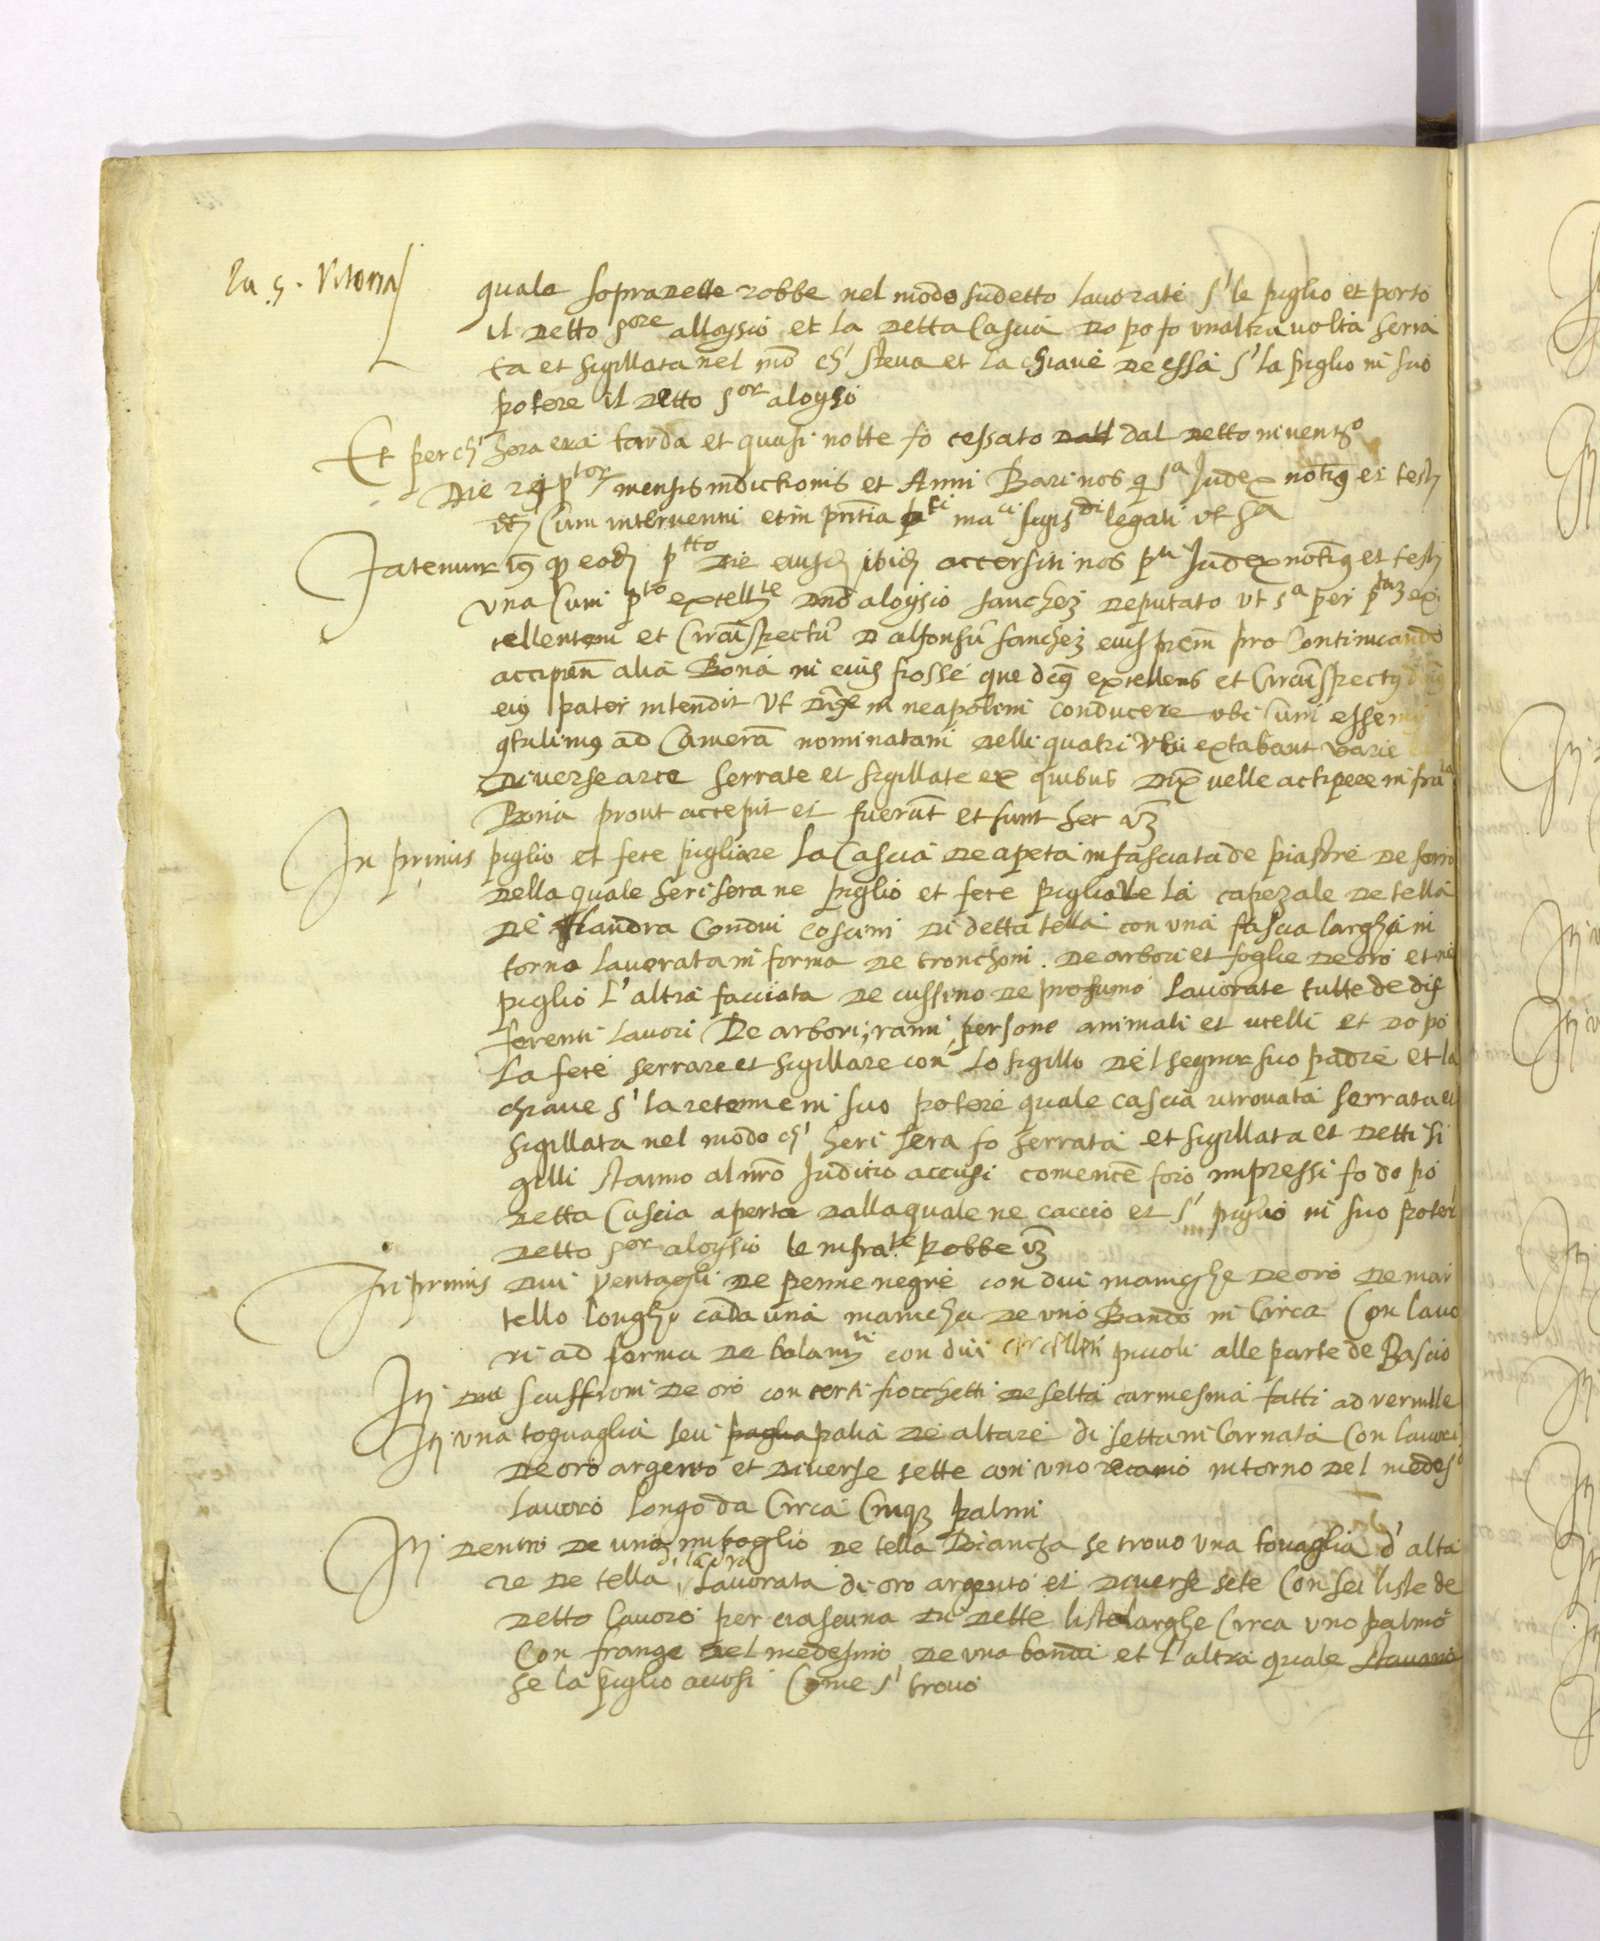 la s. Vitoria
quale sopradette robbe nel modo sudetto lavorate s' le piglio et porto
il detto s.ore alloysio et la detta Cascia dopo fo unaltra uolta serra
ta et sigillata nel mō ch' steua et la chiave de essa s' la piglio in suo
potere il detto s.or aloysio
Et per ch' hora era tarda et quasi notte fo cessato dall dal detto invent.o
Die 24 p.tor mensis indictionis et Anni Bari nos q s.a Judex not.us et test
Cum interventu et in pñtia legati ut s.a
Fatemur qp eod p.tto die eiusd ibid accersiti nos p.ti Judex not.us et test
una Cum p.to excell.te dnō aloysio sanchez deputato ut s.a per p.tum ex
cellentem et Circuspectū D alfonsū sanchez eius prem̄ pro Continuando
accipen alia Bona in eius posse que dict excellens et Circuspectus
eius pater intendit ut in neapolim conducere ubi Cum essemus
ad Camerā nominatam delli quatri ubi extabant varie
Diverse arce serrate et sigillate ex quibus dix uelle accipere infra.ta
Bona prout accepit et fuerūt et sunt hec vz
In primis piglio et fece pigliare la Cascia de apeta infasciata de piastre de ferro
della quale heri sera ne piglio et fece pigliare la capezale de tella
de flandra Con dui coscini di detta tella con una fascia largha in
torno lauorata in forma de tronchoni de arbori et foglie de oro et ne
piglio l'altra facciata de cussino de profumo lauorate tutte de dif
ferenti lauori De arbori, rami, persone animali et ucelli et dopo
La fece serrare et sigillare con lo sigillo del segnur suo padre et la
chiaue s' la retenne in suo potere quale cascia ritrouata serrata et
sigillata nel modo ch' heri sera fo serrata et sigillata et detti si
gilli stanno al nrō Juditio accusi comencē foro impressi fo dopo
detta Cascia aperta dalla quale ne caccio et s' piglio in suo poter
detto s.or aloysio le infra.te robbe vz
In primis dui ventagli de penne negre con dui maniche de oro de mar
tello longhi cada una manicha de uno Bando in Circa Con lauo
ri ad forma de con dui piccoli alle parte de Bascio
It due scuffioni de oro con certi fiocchetti de selta carmesina fatti ad vermille
It una toguaglia seu paglia palia de altare di setta in Carnata Con lauori
de oro argento et diuerse sette con uno recamo intorno del medes.o
lauoro longo da Circa Cinq palmi
It dentro de uno inboglio de tella Biancha se trouo una touaglia d' alta
re de tella Lauorata di oro argento et diuerse sete Con sei liste de
detto lauoro per ciascuna di dette liste larghe Circa uno palmo
Con frange del medesmo de una banda et l'altra quale stauano
se la piglio accosi Come s' trouo